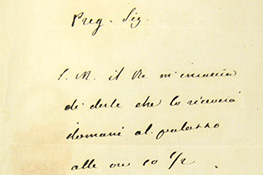 Preg. Sig.
S. M. il Re m'incarica
di dirle che lo riceverà
domani al palazzo
alle ore 10 1/2.